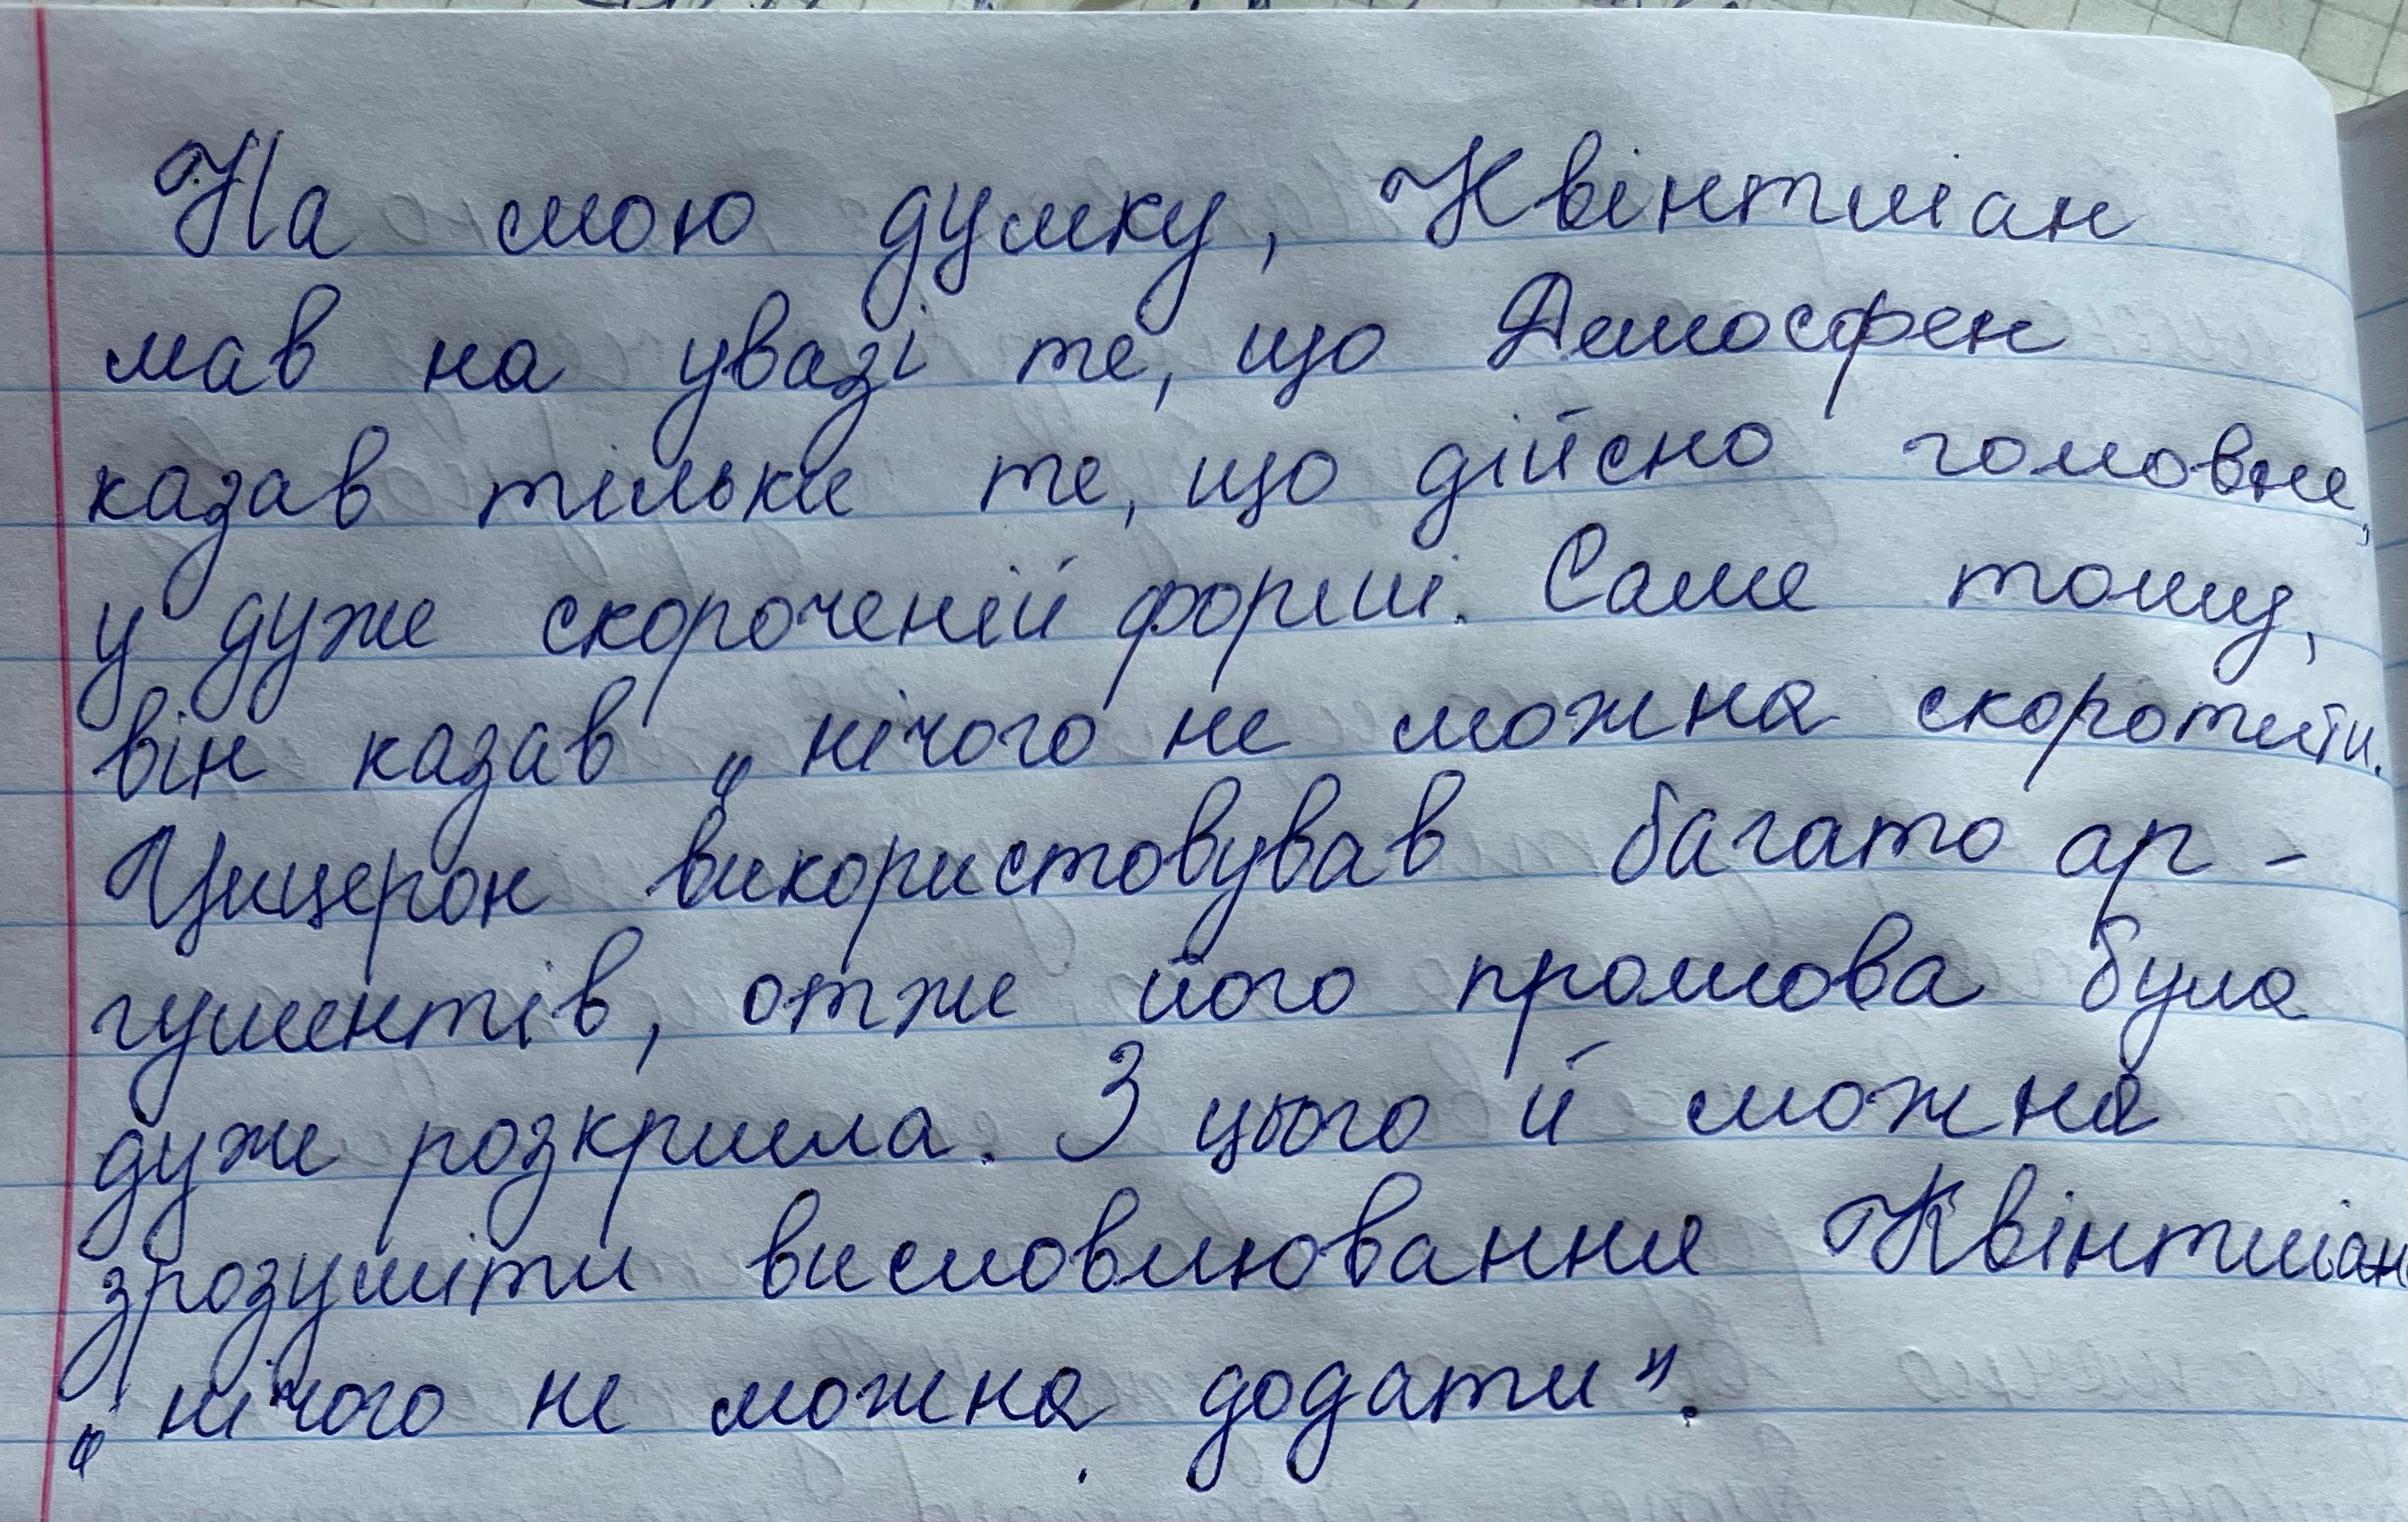 На мою думку, Квінтиліан
мав на увазі те, що Демосфен
казав тільки те, що дійсно головне,
у дуже скороченій формі. Саме тому,
він казав „нічого не можна скоротити.
Цицерон використовував багато ар-
гументів, отже його промова була
дуже розкрила. З цього й можна
зрозуміти висловлювання Квінтиліан
„нічого не можна додати".